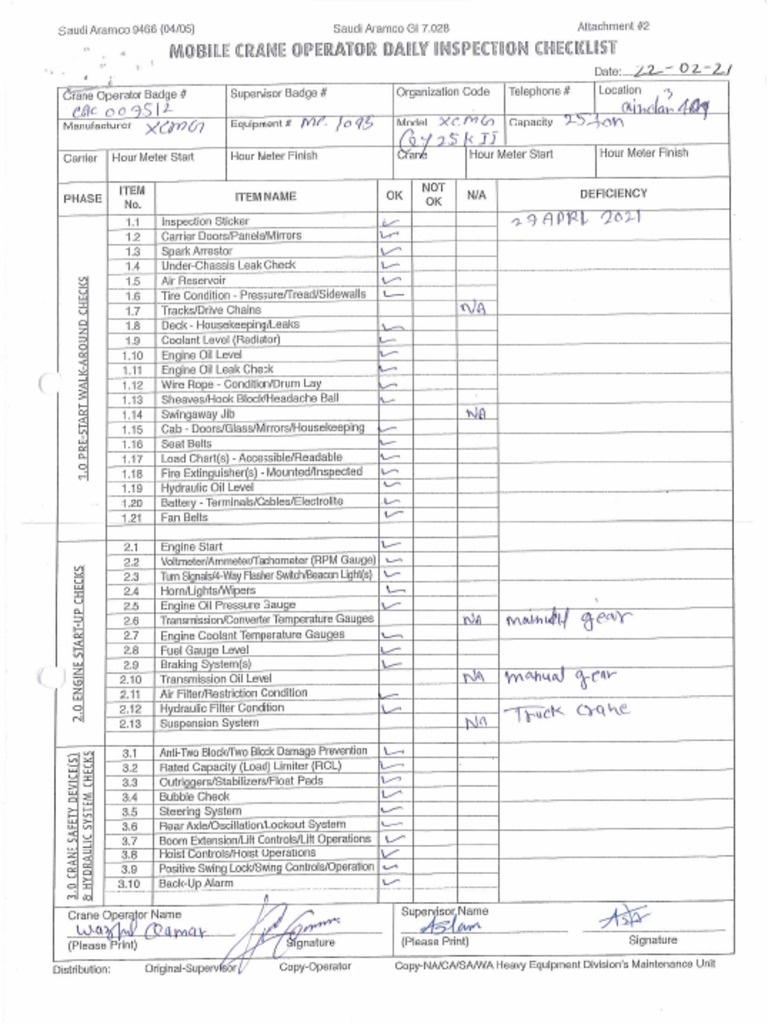 Saudi Aramco 9466 (04/05) Saudi Aramco GI 7.028 Attachment #2
MOBILE CRANE OPERATOR DAILY INSPECTION CHECKLIST
Date: 22-02-21
Crane Operator Badge # Supervisor Badge # Organization Code Telephone # Location
CAC 009512
Manufacturer XCMG Equipment # MC. 1093 Model XCMG Capacity 25 Ton
QY25KII
Carrier Hour Meter Start Hour Meter Finish Crane Hour Meter Start Hour Meter Finish
PHASE ITEM No. ITEM NAME OK NOT OK N/A DEFICIENCY
1.0 PRE-START WALK-AROUND CHECKS
1.1 Inspection Sticker ✓ 29 APRL 2021
1.2 Carrier Doors/Panels/Mirrors ✓
1.3 Spark Arrestor ✓
1.4 Under-Chassis Leak Check ✓
1.5 Air Reservoir ✓
1.6 Tire Condition - Pressure/Tread/Sidewalls ✓
1.7 Tracks/Drive Chains NA
1.8 Deck - Housekeeping/Leaks ✓
1.9 Coolant Level (Radiator) ✓
1.10 Engine Oil Level ✓
1.11 Engine Oil Leak Check ✓
1.12 Wire Rope - Condition/Drum Lay ✓
1.13 Sheaves/Hook Block/Headache Ball ✓
1.14 Swingaway Jib NA
1.15 Cab - Doors/Glass/Mirrors/Housekeeping ✓
1.16 Seat Belts ✓
1.17 Load Chart(s) - Accessible/Readable ✓
1.18 Fire Extinguisher(s) - Mounted/Inspected ✓
1.19 Hydraulic Oil Level ✓
1.20 Battery - Terminals/Cables/Electrolite ✓
1.21 Fan Belts ✓
2.0 ENGINE START-UP CHECKS
2.1 Engine Start ✓
2.2 Voltmeter/Ammeter/Tachometer (RPM Gauge) ✓
2.3 Turn Signals/4-Way Flasher Switch/Beacon Light(s) ✓
2.4 Horn/Lights/Wipers ✓
2.5 Engine Oil Pressure Gauge ✓
2.6 Transmission/Converter Temperature Gauges NA gear
2.7 Engine Coolant Temperature Gauges ✓
2.8 Fuel Gauge Level ✓
2.9 Braking System(s) ✓
2.10 Transmission Oil Level NA manual gear
2.11 Air Filter/Restriction Condition ✓
2.12 Hydraulic Filter Condition ✓ Truck crane
2.13 Suspension System NA
3.0 CRANE SAFETY DEVICE(S) & HYDRAULIC SYSTEM CHECKS
3.1 Anti-Two Block/Two Block Damage Prevention ✓
3.2 Rated Capacity (Load) Limiter (RCL) ✓
3.3 Outriggers/Stabilizers/Float Pads ✓
3.4 Bubble Check ✓
3.5 Steering System ✓
3.6 Rear Axle/Oscillation/Lockout System ✓
3.7 Boom Extension/Lift Controls/Lift Operations ✓
3.8 Hoist Controls/Hoist Operations ✓
3.9 Positive Swing Lock/Swing Controls/Operation ✓
3.10 Back-Up Alarm ✓
Crane Operator Name Supervisor Name
Qamar Aslam
(Please Print) Signature (Please Print) Signature
Distribution: Original-Supervisor Copy-Operator Copy-NA/CA/SA/WA Heavy Equipment Division's Maintenance Unit